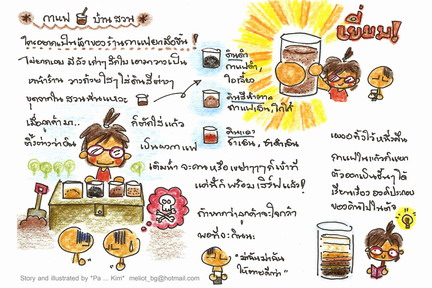 กาแฟ บ้านสวน
ใครอยากเป็นเจ้าของร้านกาแฟยกมือขึ้น!
ไม่ยากเลย มีถังเก่าๆสักใบ เอามาวางเป็น
หน้าร้าน วางถ้วยใสๆ ใส่ดินสีต่างๆ
ขุดจากในสวนนั่นแหละ
เมื่อลูกค้ามา.. ก็ตักใส่แก้ว
สั่งว่าท่านดื่ม เป็นผงกาแฟ
เติมน้ำ จะคน หรือ เขย่าๆๆ ก็เข้าที
แค่นี้ก็พร้อมเสิร์ฟแล้ว!
ถ้าหากว่าลูกค้าจะใจกล้า
พอที่จะกิน!
"มันแน่นดิน
ให้ตายสิกว่า"
ดินดำ
กาแฟดำ,
โอเลี้ยง
ดินสีน้ำตาล
กาแฟเย็น, โกโก้
ดินแดง
ชาเย็น, ชาดำเย็น
เยี่ยม!
เผลอทิ้งไว้แค่สิบวัน
กาแฟในแก้วก็แยก
ตัวออกเป็นชั้นๆ ได้
เรียนเรื่ององค์ประกอบ
ของดินไปในตัว
Story and illustrated by "Pa ... Kim" meliot_bg@hotmail.com